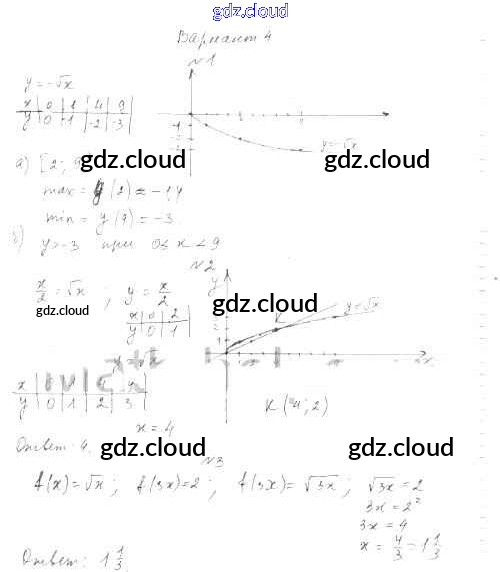 gdz.cloud
Вариант 4
№1
y = -√x
x | 0 | 1 | 4 | 9
y | 0 | -1 | -2 | -3
y=-√x
а) [2; 9]
gdz.cloud gdz.cloud
max = y(2) ≈ -1,4
min = y(9) = -3
б) y>-3 при 0≤x<9
№2
x/2 = √x ; y = x/2
gdz.cloud gdz.cloud
x | 0 | 2
y | 0 | 1
y
K
y=√x
2
1
x
y = √x
x | 0 | 1 | 4 | 9
y | 0 | 1 | 2 | 3
K (4; 2)
x = 4
Ответ: 4.
gdz.cloud gdz.cloud
№3
f(x)=√x ; f(3x)=2 ; f(3x)=√3x ; √3x = 2
3x = 2²
3x = 4
x = 4/3 = 1 1/3
Ответ: 1 1/3.
gdz.cloud gdz.cloud